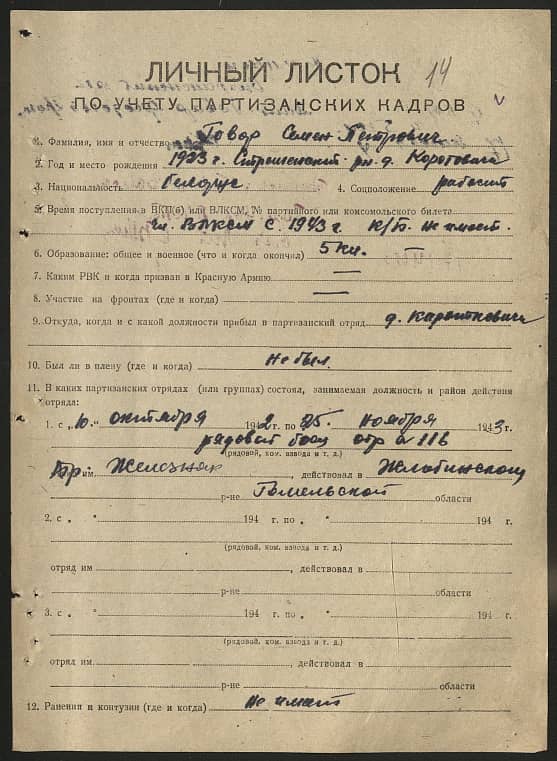 14
ЛИЧНЫЙ ЛИСТОК
ПО УЧЕТУ ПАРТИЗАНСКИХ КАДРОВ
1. Фамилия, имя и отчество Говор Семен Петрович
2. Год и место рождения 1923 г. Стрешенский рн. д. Коротковичи
3. Национальность белорус 4. Соцположение рабочий
5. Время поступления в ВКП(б) или ВЛКСМ, № партийного или комсомольского билета
чл. ВЛКСМ с 1943 г. К/б. не имеет.
6. Образование: общее и военное (что и когда окончил) 5 кл. —
7. Каким РВК и когда призван в Красную Армию —
8. Участие на фронтах (где и когда) —
9. Откуда, когда и с какой должности прибыл в партизанский отряд д. Короткевичи
10. Был ли в плену (где и когда) Не был.
11. В каких партизанских отрядах (или группах) состоял, занимаемая должность и район действия
отряда:
1. с „10“ октября 1942 г. по 25. ноября 1943 г.
рядовой боец отр № 116
(рядовой, ком. взвода и т. д.)
бр. им. Железняк, действовал в Жлобинском
р-не Гомельской области
2. с „ “ 194 г. по „ “ 194 г.
(рядовой, ком. взвода и т. д.)
отряд им , действовал в
р-не области
3. с „ “ 194 г. по „ “ 194 г.
(рядовой, ком. взвода и т. д.)
отряд им , действовал в
р-не области
12. Ранения и контузии (где и когда) Не имеет